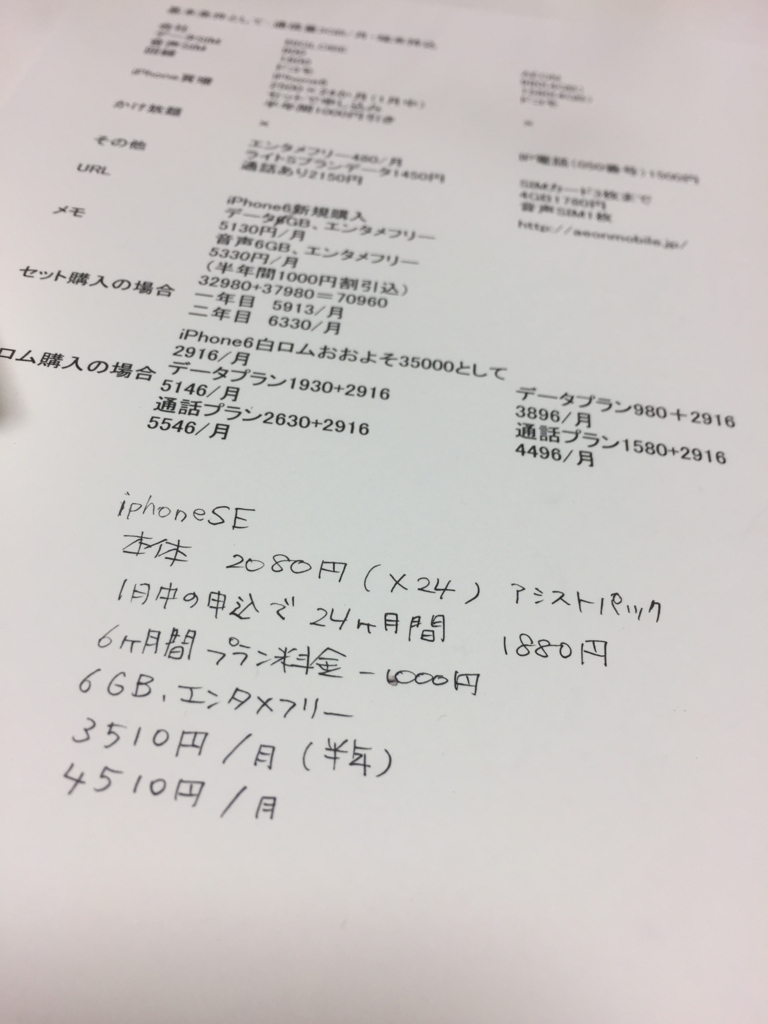 基本条件として・通信量3GB/月・端末持込
会社
データSIM
音声SIM
回線 ドコモ ドコモ
iPhone6
iPhone買増 2500×24か月(1月中)
セットで申し込み
半年間1000円引き
かけ放題 × ×
その他 エンタメフリー480/月 IP電話(050番号)1500円
ライトSプランデータ1450円
通話あり2150円 SIMカード3枚まで
4GB1780円
音声SIM1枚
URL http://aeonmobile.jp/
メモ iPhone6新規購入
データ6GB、エンタメフリー
5130円/月
音声6GB、エンタメフリー
5330円/月
(半年間1000円割引込)
セット購入の場合 32980+37980=70960
一年目 5913/月
二年目 6330/月
iPhone6白ロムおおよそ35000として
2916/月
ロム購入の場合 データプラン1930+2916 データプラン980+2916
5146/月 3896/月
通話プラン2630+2916 通話プラン1580+2916
5546/月 4496/月
iphoneSE
本体 2080円(×24) アシストパック
1月中の申込で24ヶ月間 1880円
6ヶ月間プラン料金-1000円
6GB、エンタメフリー
3510円/月(半年)
4510円/月